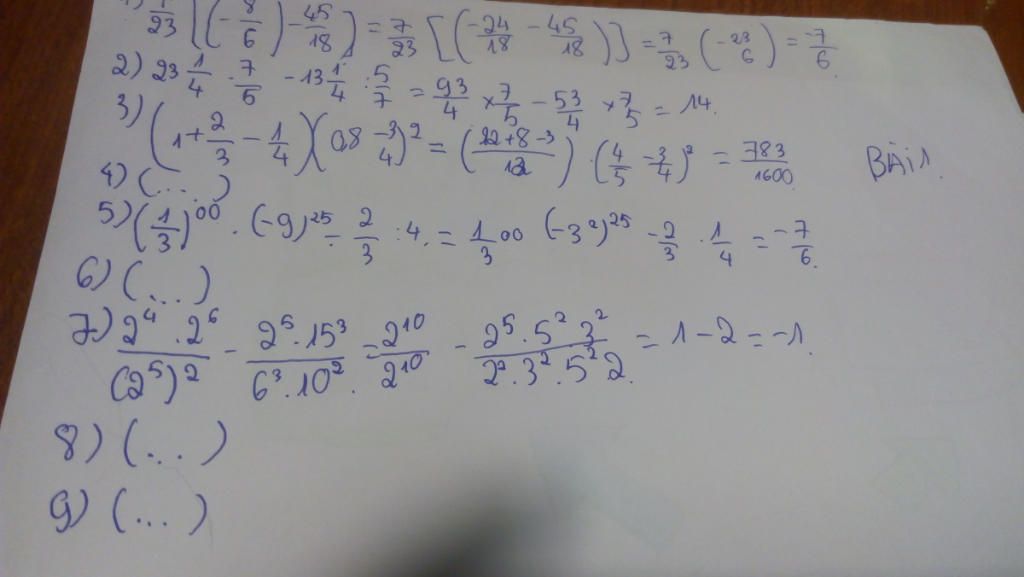 1) 7/23 [(-8/6) - 45/18] = 7/23 [(-24/18 - 45/18)] = 7/23 (-23/6) = -7/6.
2) 23 1/4 . 7/5 - 13 1/4 : 5/7 = 93/4 × 7/5 - 53/4 × 7/5 = 14.
3) (1 + 2/3 - 1/4)(0,8 - 3/4)² = (12+8-3/12) . (4/5 - 3/4)² = 783/1600
BÀI 1.
4) (...)
5) (1/3)⁰⁰ . (-9)²⁵ - 2/3 : 4. = 1/3⁰⁰ (-3²)²⁵ - 2/3 . 1/4 = -7/6.
6) (...)
7) 2⁴ . 2⁶/(2⁵)² - 2⁵ . 15³/6³ . 10². = 2¹⁰/2¹⁰ - 2⁵ . 5² 3²/2² . 3² . 5² 2. = 1 - 2 = -1.
8) (...)
9) (...)